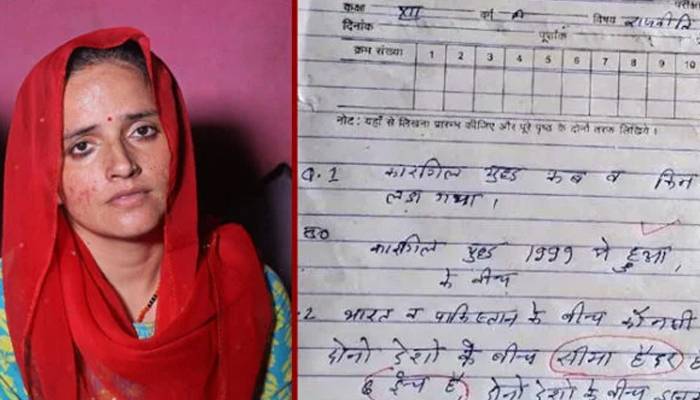 परीक्षा
कक्षा XII की विषय राजनीति
दिनांक पूर्णांक
क्रम संख्या 1 2 3 4 5 6 7 8 9 10
नोट : यहाँ से लिखना प्रारम्भ कीजिए और पूरे पृष्ठ के दोनों तरफ लिखिये ।
Q.1 कारगिल युद्ध कब व किन
लडा गया ।
उ०
कारगिल युद्ध 1999 मे हुआ
के बीच
.2 भारत व पाकिस्तान के बीच कौनसी
दोनो देशो के बीच सीमा हैदर है
6 इंच है, दोनो देशो के बीच